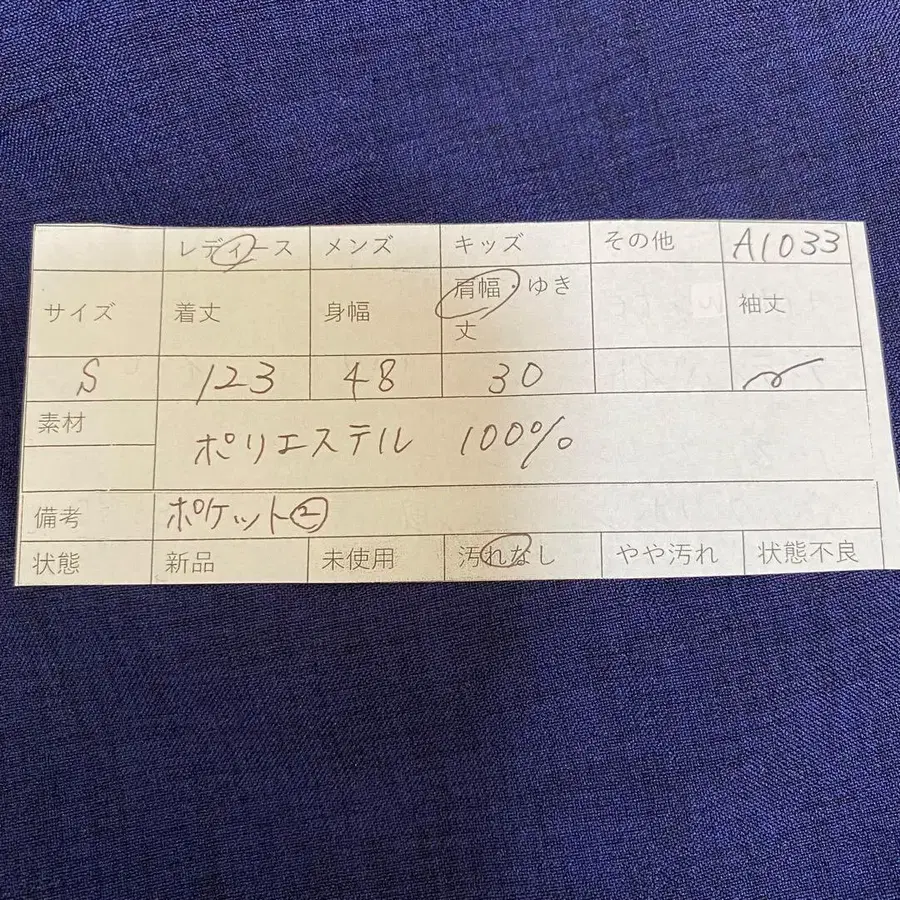 レディース メンズ キッズ その他 A1033
サイズ 着丈 身幅 肩幅・ゆき丈 袖丈
S 123 48 30
素材 ポリエステル 100%
備考 ポケット②
状態 新品 未使用 汚れなし やや汚れ 状態不良